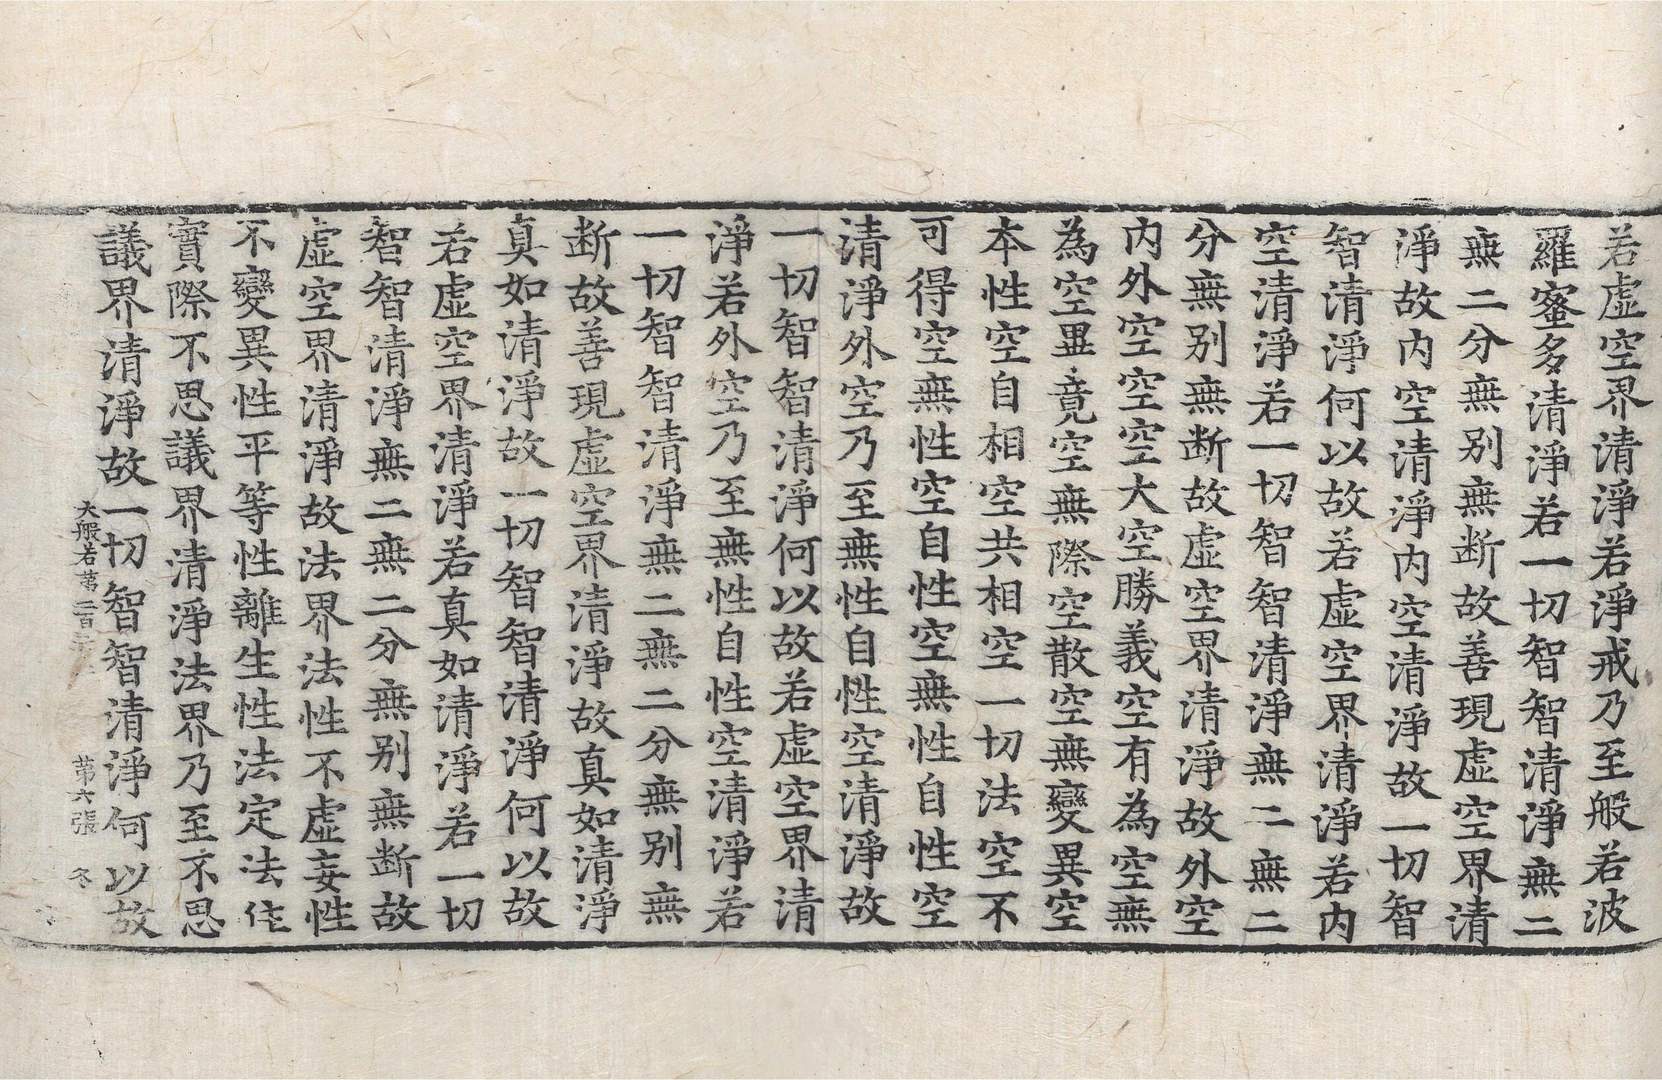 若虛空界清淨若淨戒乃至般若波
羅蜜多清淨若一切智智清淨無二
無二分無別無断故善現虛空界清
淨故内空清淨内空清淨故一切智
智清淨何以故若虛空界清淨若内
空清淨若一切智智清淨無二無二
分無別無断故虛空界清淨故外空
内外空空空大空勝義空有為空無
為空畢竟空無際空散空無變異空
本性空自相空共相空一切法空不
可得空無性空自性空無性自性空
清淨外空乃至無性自性空清淨故
一切智智清淨何以故若虛空界清
淨若外空乃至無性自性空清淨若
一切智智清淨無二無二分無別無
断故善現虛空界清淨故真如清淨
真如清淨故一切智智清淨何以故
若虛空界清淨若真如清淨若一切
智智清淨無二無二分無別無断故
虛空界清淨故法界法性不虛妄性
不變異性平等性離生性法定法住
實際不思議界清淨法界乃至不思
議界清淨故一切智智清淨何以故
大般若第二百 第六張 冬